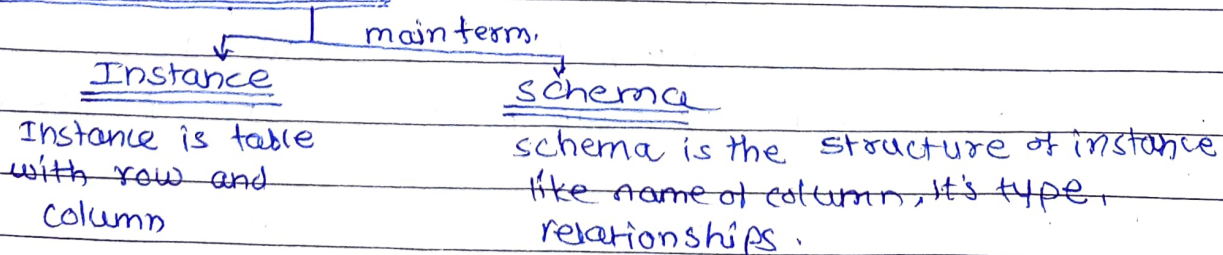 main term.
Instance
Schema
Instance is table
with row and
column
schema is the structure of instance
like name of column, it's type,
relationships.